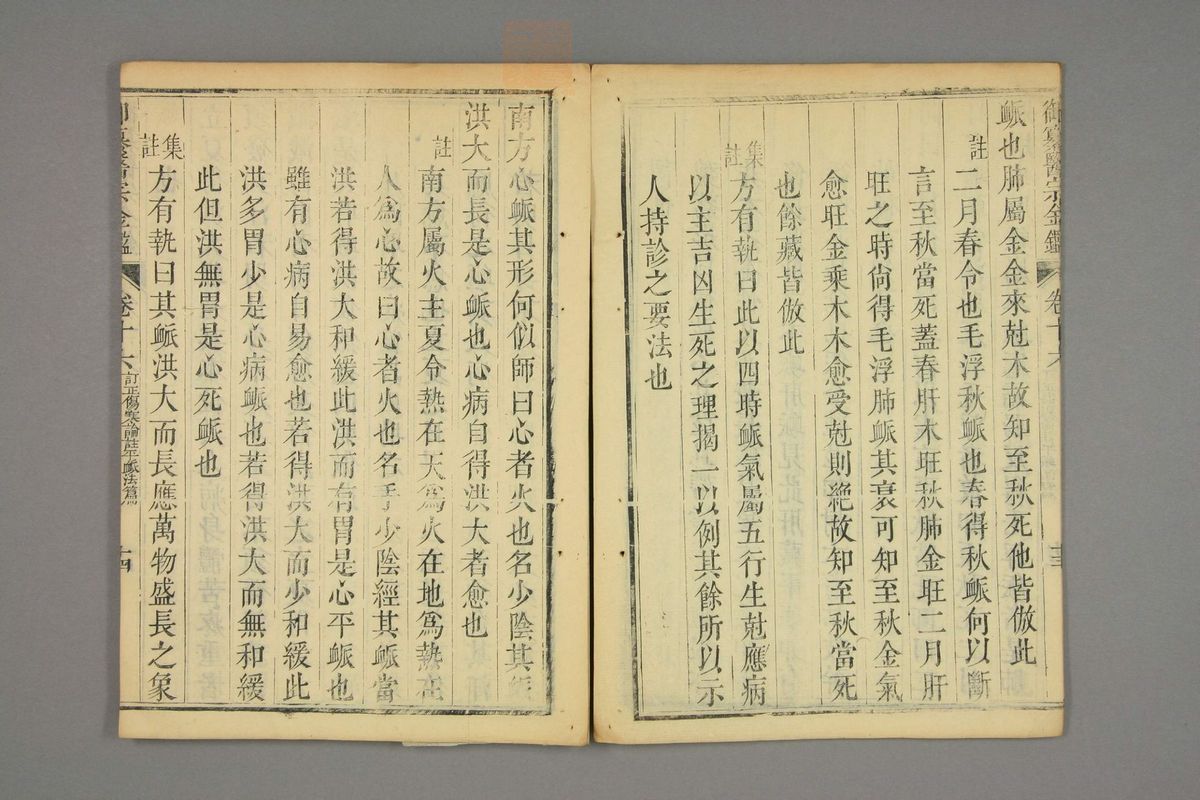 御纂醫宗金鑑 卷十六 十三
脈也肺屬金金來尅木故知至秋死他皆倣此
註
二月春令也毛浮秋脈也春得秋脈何以斷
言至秋當死蓋春肝木旺秋肺金旺二月肝
旺之時尙得毛浮肺脈其衰可知至秋金氣
愈旺金乘木木愈受尅則絶故知至秋當死
也餘藏皆倣此
集註
方有執曰此以四時脈氣屬五行生尅應病
以主吉凶生死之理揭一以例其餘所以示
人持診之要法也
南方心脈其形何似師曰心者火也名少陰其脈
洪大而長是心脈也心病自得洪大者愈也
註
南方屬火主夏令熱在天爲火在地爲熱在
人爲心故曰心者火也名手少陰經其脈當
洪若得洪大和緩此洪而有胃是心平脈也
雖有心病自易愈也若得洪大而少和緩此
洪多胃少是心病脈也若得洪大而無和緩
此但洪無胃是心死脈也
集註
方有執曰其脈洪大而長應萬物盛長之象
御纂醫宗金鑑 卷十六 訂正傷寒論註平脈法篇 十四